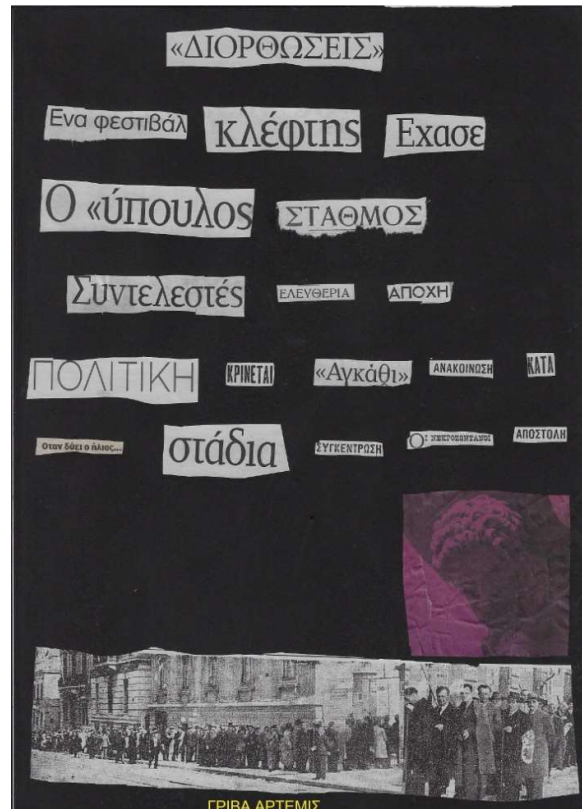 «ΔΙΟΡΘΩΣΕΙΣ»
Ενα φεστιβάλ κλέφτης Εχασε
Ο «ύπουλος ΣΤΑΘΜΟΣ
Συντελεστές ΕΛΕΥΘΕΡΙΑ ΑΠΟΧΗ
ΠΟΛΙΤΙΚΗ ΚΡΙΝΕΤΑΙ «Αγκάθι» ΑΝΑΚΟΙΝΩΣΗ ΚΑΤΑ
Οταν δύει ο ήλιος... στάδια ΣΥΓΚΕΝΤΡΩΣΗ Οι ΝΕΚΡΟΖΩΝΤΑΝΟΙ ΑΠΟΣΤΟΛΗ
ΓΡΙΒΑ ΑΡΤΕΜΙΣ